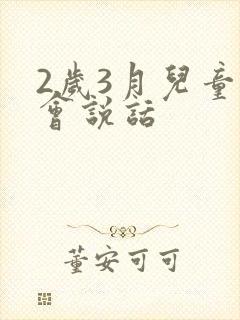 2歲3月兒童
會說話
董安可可